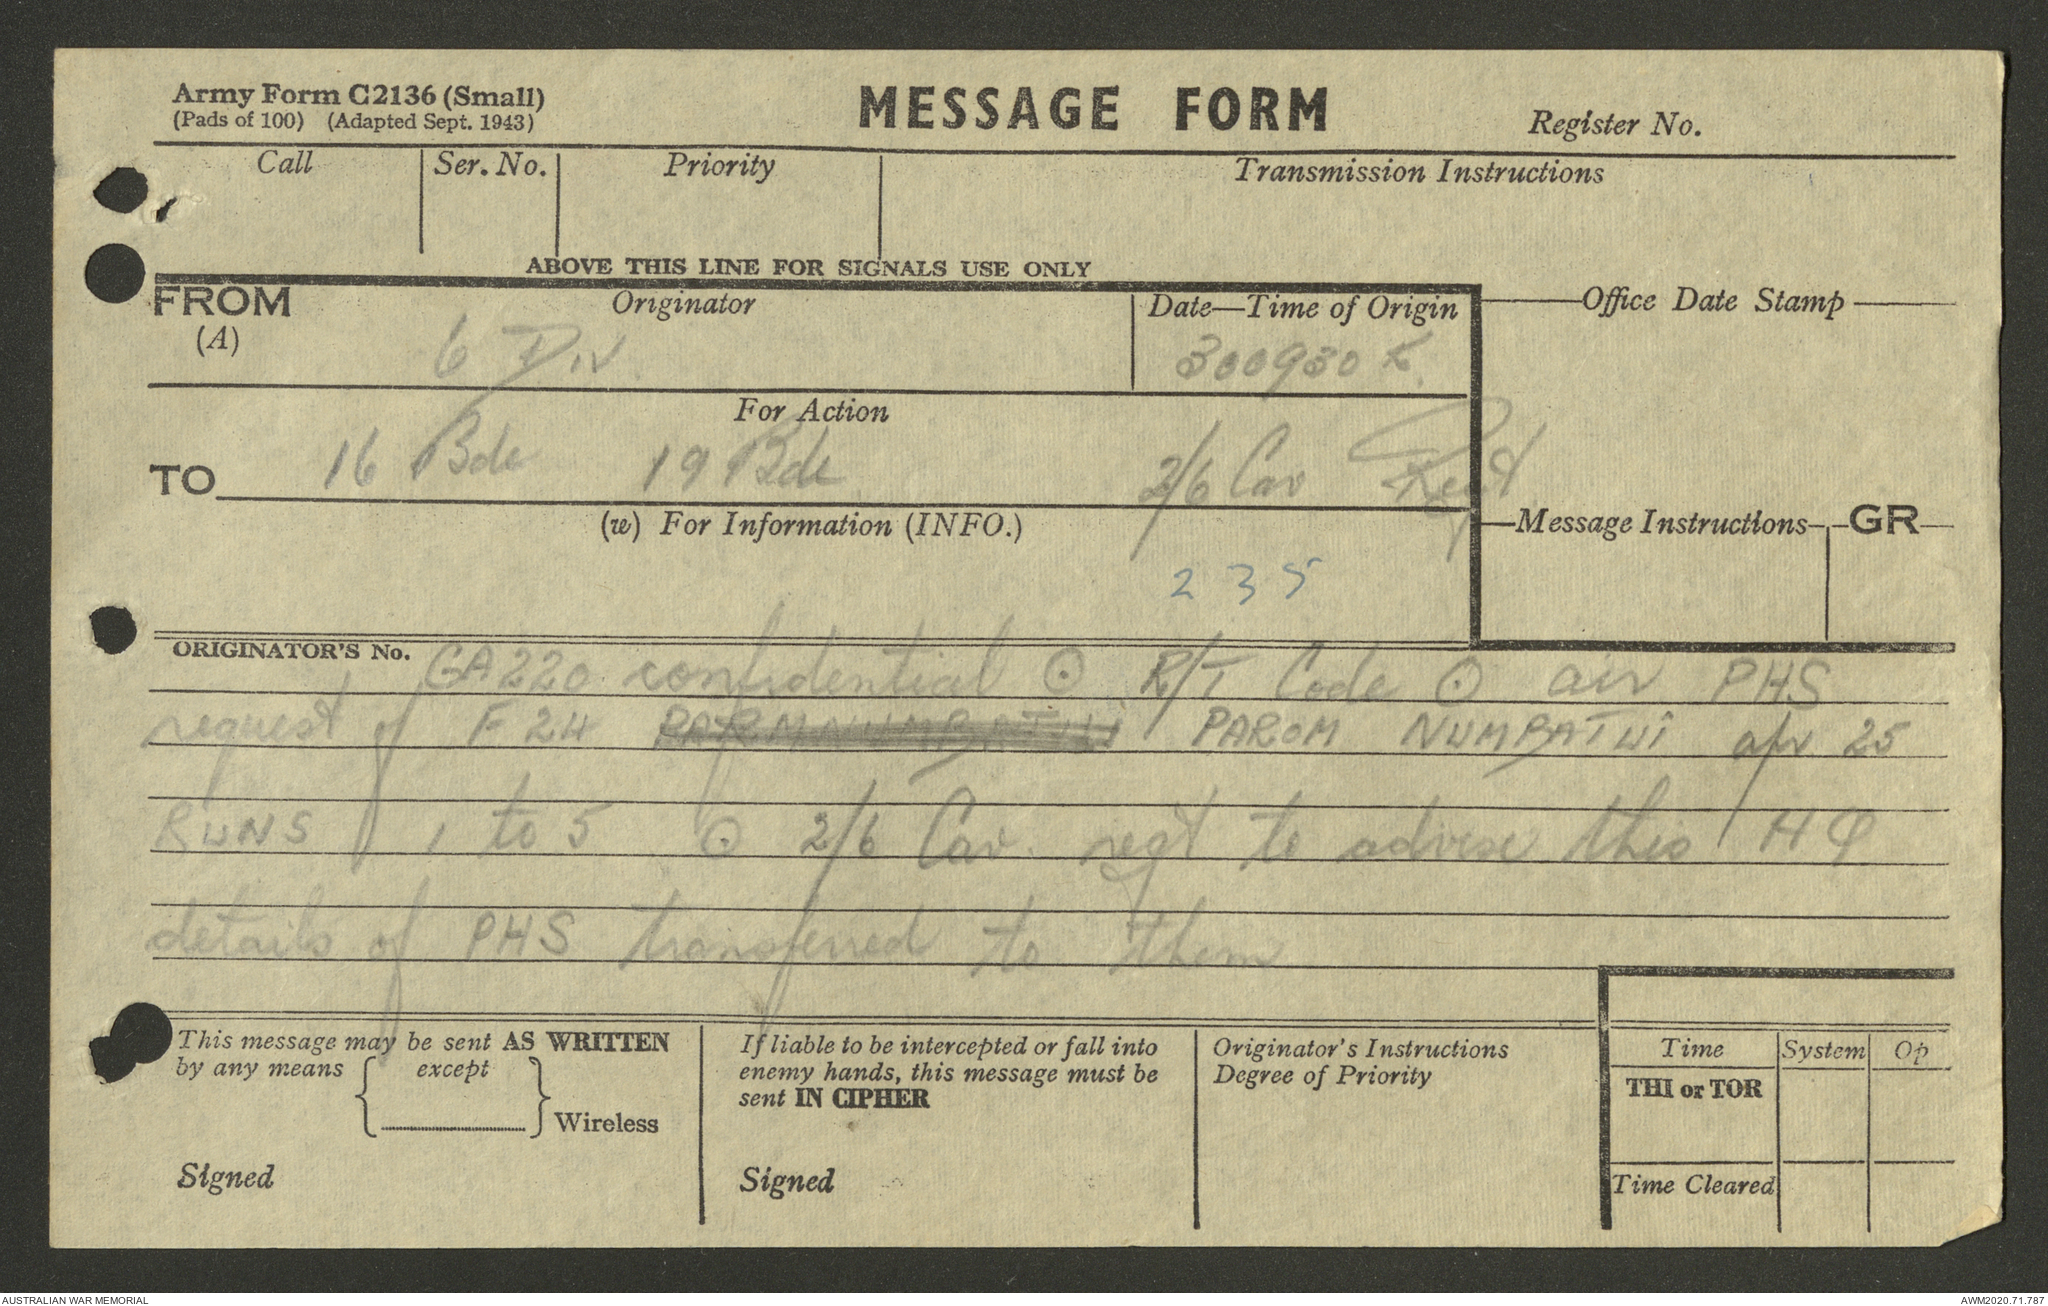 Army Form C2136 (Small)
(Pads of 100) (Adapted Sept. 1943)
MESSAGE FORM
Register No.
Call
Ser. No.
Priority
Transmission Instructions
ABOVE THIS LINE FOR SIGNALS USE ONLY
FROM
(A)
Originator
6 Div.
Date—Time of Origin
300930 K.
Office Date Stamp
For Action
TO
16 Bde 19 Bde 2/6 Cav Regt
(w) For Information (INFO.)
Message Instructions
GR
2 3 5
ORIGINATOR'S No.
GA220 confidential ⊙ R/T Code ⊙ air PHS
request of F 24 PAROM NUMBATWI apr 25
RUNS 1 to 5 ⊙ 2/6 Cav. regt to advise this HQ
details of PHS transferred to them
This message may be sent AS WRITTEN
by any means { except } Wireless
Signed
If liable to be intercepted or fall into
enemy hands, this message must be
sent IN CIPHER
Signed
Originator's Instructions
Degree of Priority
Time System Op
THI or TOR
Time Cleared
AUSTRALIAN WAR MEMORIAL
AWM2020.71.787